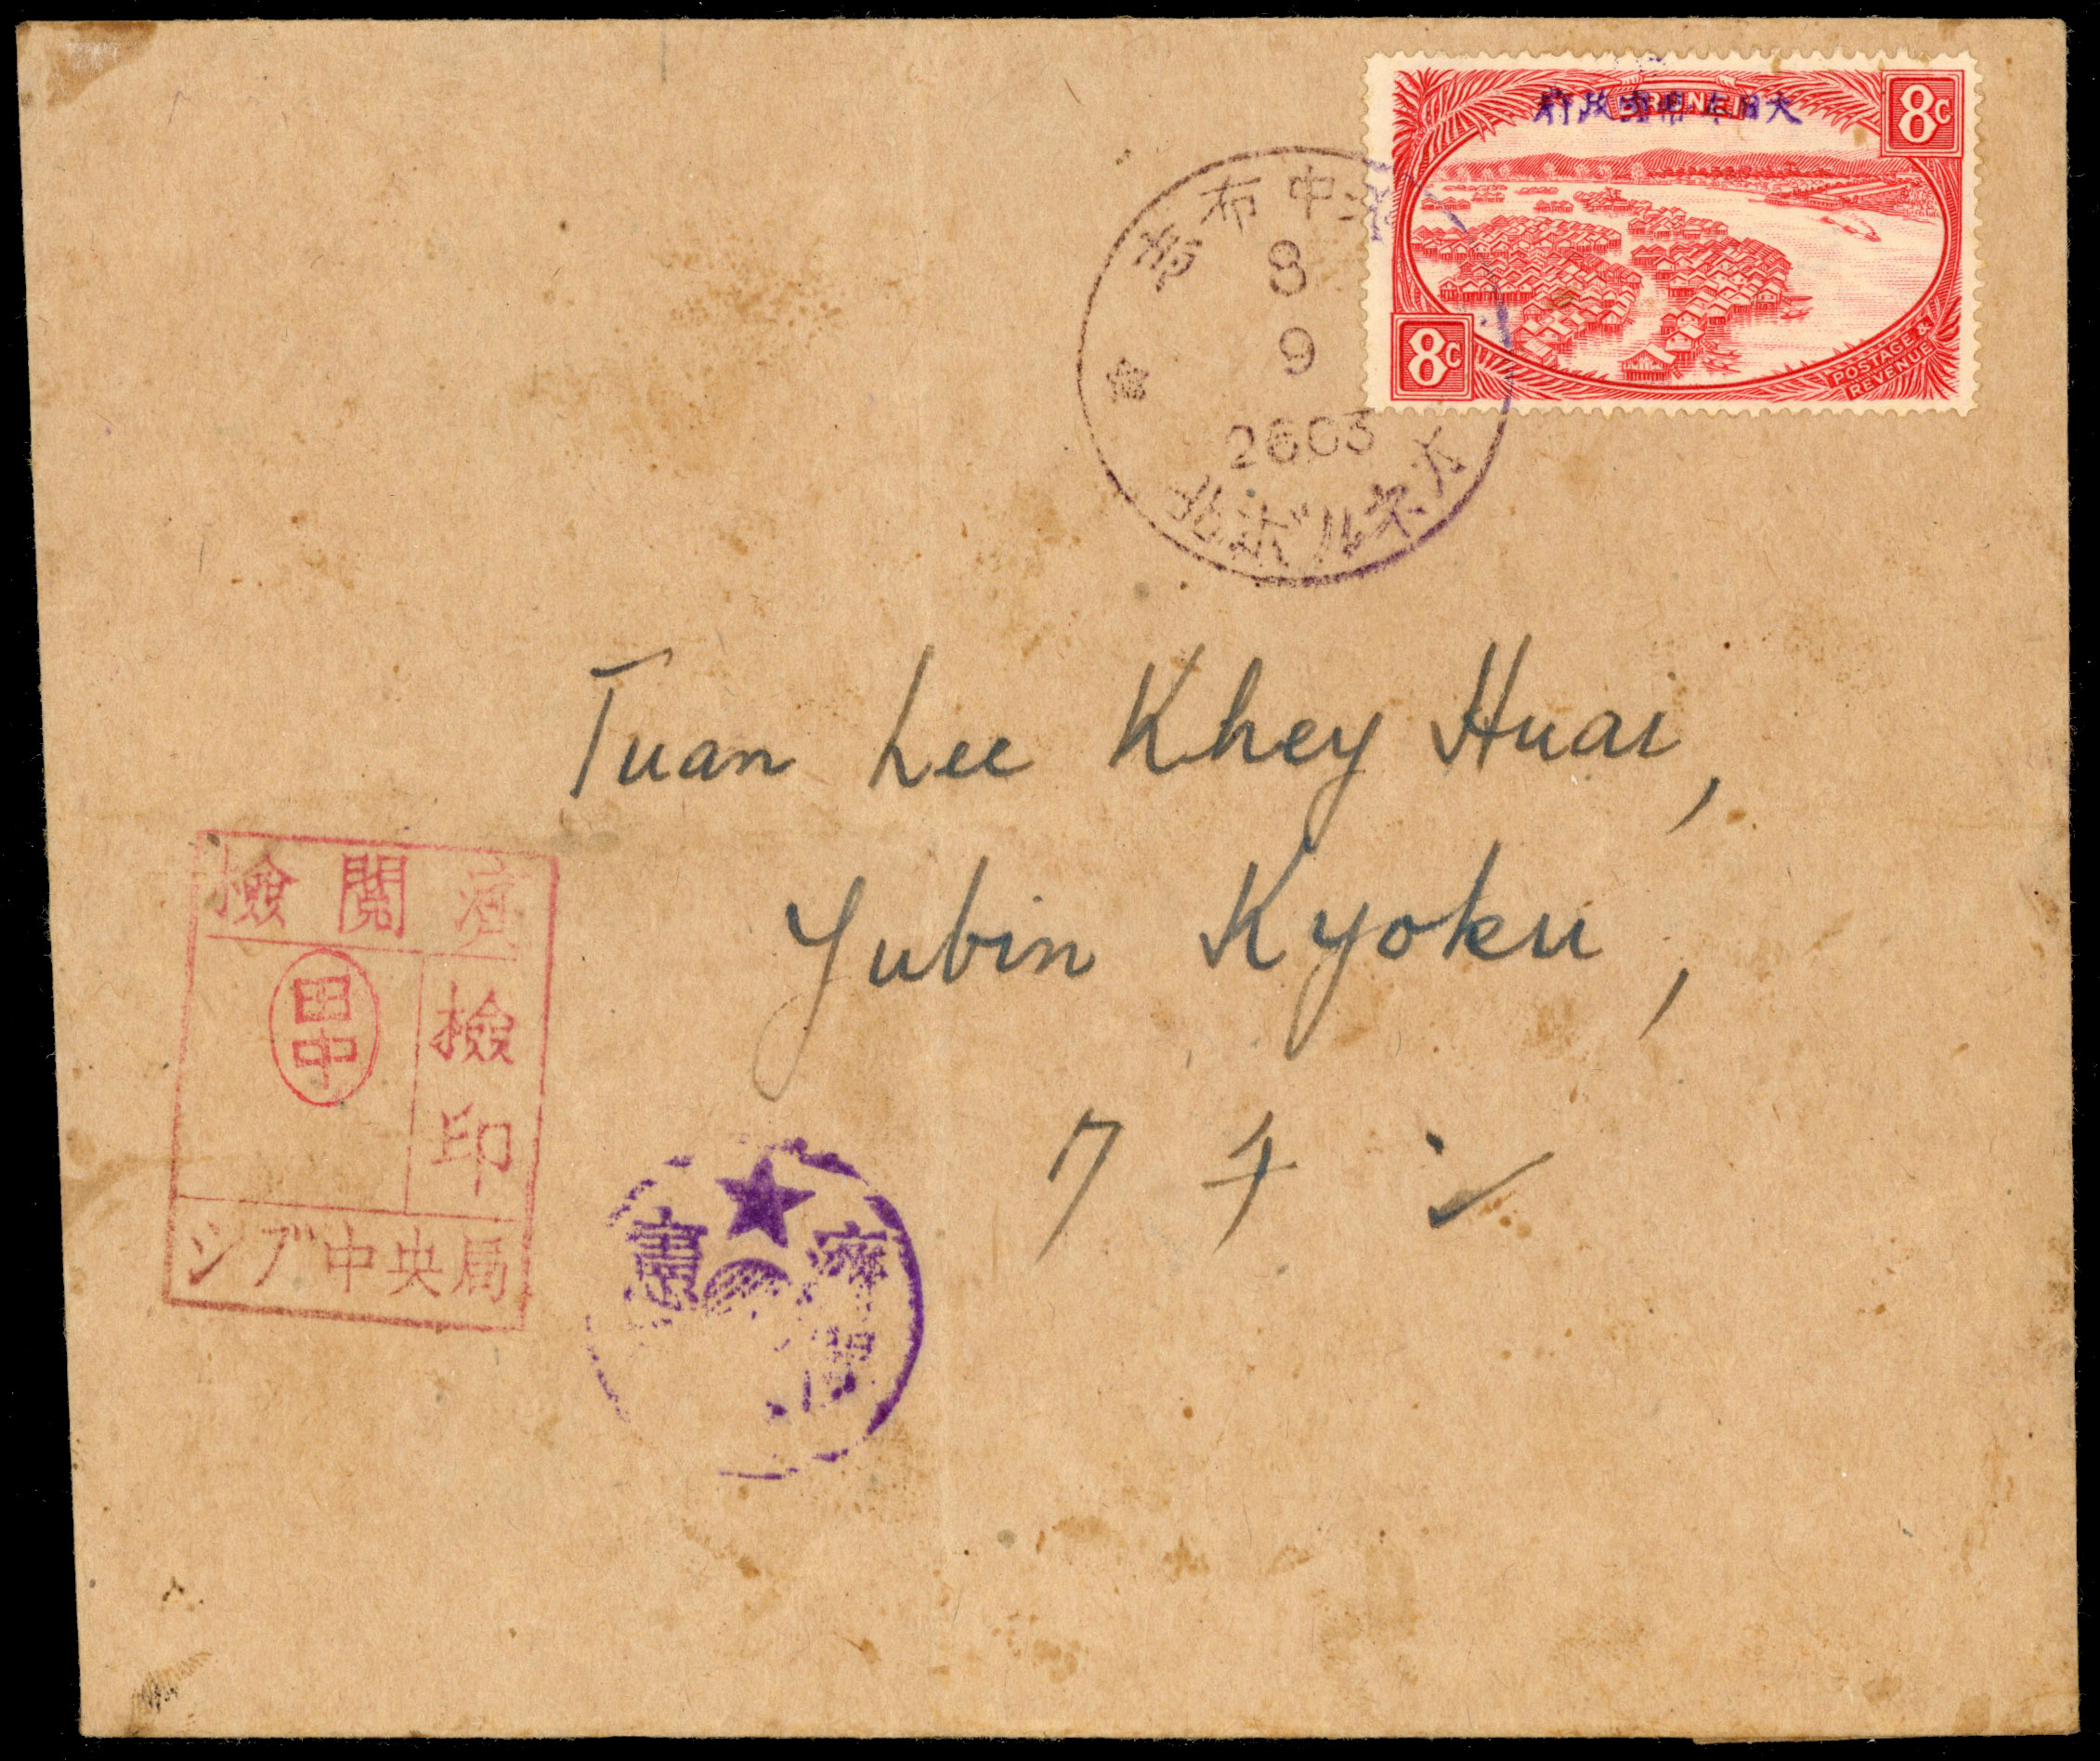 BRUNEI
大日本帝國政府
8C
8C
POSTAGE &
REVENUE
布中
8
9
2603
北ボルネオ
Tuan Lee Khey Huai,
Yubin Kyoku,
クチン
檢閲濟
檢印
田中
シブ中央局